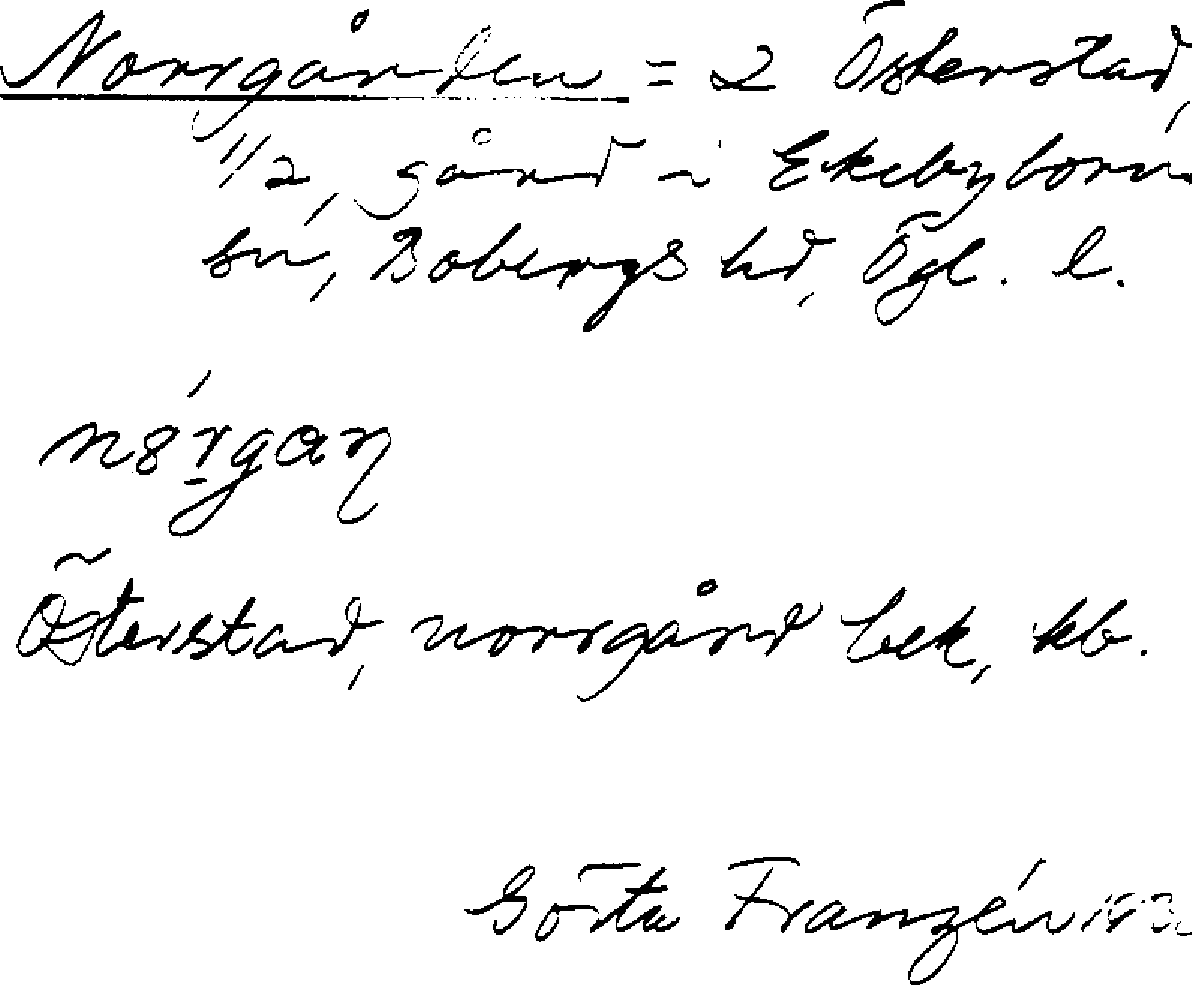 Norrgården = 2 Österstad,
1/2, gård i Ekebyborna
sn, Bobergs hd, Ögl. l.
nórgaɳ
Österstad, norrgård bek, kb.
Gösta Franzén